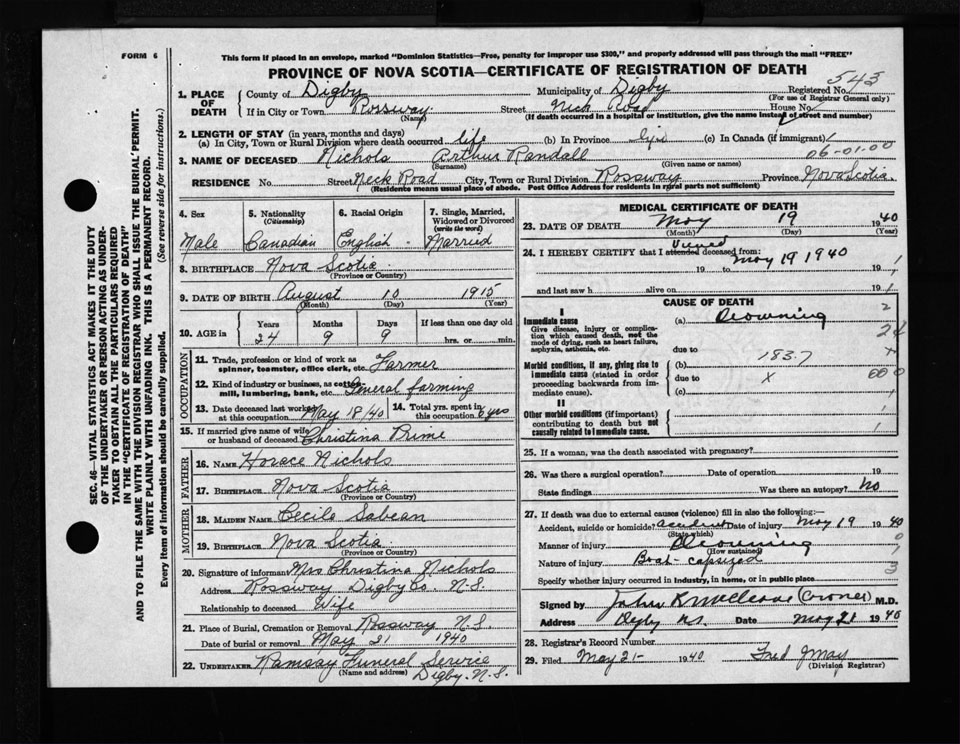 FORM 6
This form if placed in an envelope, marked "Dominion Statistics—Free, penalty for improper use $300," and properly addressed will pass through the mail "FREE"
PROVINCE OF NOVA SCOTIA—CERTIFICATE OF REGISTRATION OF DEATH
SEC. 46—VITAL STATISTICS ACT MAKES IT THE DUTY
OF THE UNDERTAKER OR PERSON ACTING AS UNDER-
TAKER TO OBTAIN ALL THE PARTICULARS REQUIRED
IN THE "CERTIFICATE OF REGISTRATION OF DEATH"
AND TO FILE THE SAME WITH THE DIVISION REGISTRAR WHO SHALL ISSUE THE BURIAL PERMIT.
WRITE PLAINLY WITH UNFADING INK. THIS IS A PERMANENT RECORD.
Every item of information should be carefully supplied. (See reverse side for instructions.)
1. PLACE OF DEATH County of Digby Municipality of Digby Registered No. 543
(For use of Registrar General only)
If in City or Town Rossway Street Neck Road House No.
(Name) (If death occurred in a hospital or institution, give the name instead of street and number)
2. LENGTH OF STAY (in years, months and days)
(a) In City, Town or Rural Division where death occurred life (b) In Province life (c) In Canada (if immigrant)
06-01-00
3. NAME OF DECEASED Nichols Arthur Randall
(Surname) (Given name or names)
RESIDENCE No. Street Neck Road City, Town or Rural Division Rossway Province Nova Scotia.
(Residents means usual place of abode. Post Office Address for residents in rural parts not sufficient)
4. Sex Male
5. Nationality (Citizenship) Canadian
6. Racial Origin English
7. Single, Married, Widowed or Divorced (write the word) Married
8. BIRTHPLACE Nova Scotia
(Province or Country)
9. DATE OF BIRTH August 10 1915
(Month) (Day) (Year)
10. AGE in Years Months Days If less than one day old
24 9 9 hrs. or min.
OCCUPATION
11. Trade, profession or kind of work as spinner, teamster, office clerk, etc. Farmer
12. Kind of industry or business, as cotton mill, lumbering, bank, etc. General farming
13. Date deceased last worked at this occupation May 18/40 14. Total yrs. spent in this occupation 8 yrs
15. If married give name of wife or husband of deceased Christina Prime
FATHER
16. NAME Horace Nichols
17. BIRTHPLACE Nova Scotia
(Province or Country)
MOTHER
18. MAIDEN NAME Cecila Sabean
19. BIRTHPLACE Nova Scotia
(Province or Country)
20. Signature of informant Mrs Christina Nichols
Address Rossway Digby Co. N.S.
Relationship to deceased Wife
21. Place of Burial, Cremation or Removal Rossway N.S.
Date of burial or removal May 21 1940
22. UNDERTAKER Ramsay Funeral Service
(Name and address) Digby. N.S.
MEDICAL CERTIFICATE OF DEATH
23. DATE OF DEATH May 19 1940
(Month) (Day) (Year)
24. I HEREBY CERTIFY that I attended Viewed deceased from:
May 19 1940
19 to 19
and last saw h alive on 19
CAUSE OF DEATH
I
Immediate cause
Give disease, injury or complication which caused death, not the mode of dying, such as heart failure, asphyxia, asthenia, etc.
(a) Drowning
due to
Morbid conditions, if any, giving rise to immediate cause (stated in order proceeding backwards from immediate cause).
(b) 183.7
due to X
(c)
II
Other morbid conditions (if important) contributing to death but not causally related to immediate cause.
25. If a woman, was the death associated with pregnancy?
26. Was there a surgical operation? Date of operation 19
State findings Was there an autopsy? No
27. If death was due to external causes (violence) fill in also the following:—
Accident, suicide or homicide? accident Date of injury May 19 1940
(State which)
Manner of injury Drowning
(How sustained)
Nature of injury Boat-capsized
Specify whether injury occurred in industry, in home, or in public place
Signed by (Croner) M.D.
Address Digby N.S. Date May 21 1940
28. Registrar's Record Number
29. Filed May 21- 1940 Fred J May
(Division Registrar)